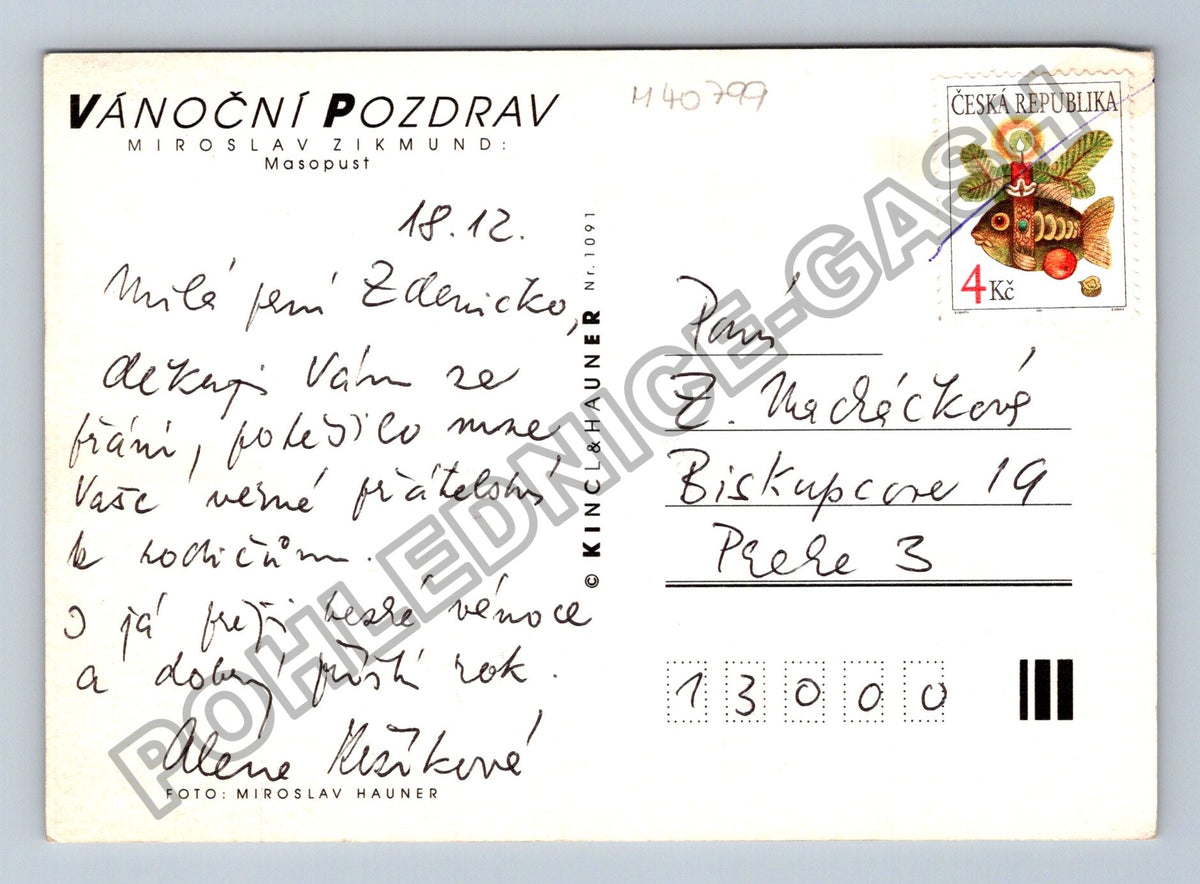 VÁNOČNÍ POZDRAV
MIROSLAV ZIKMUND:
Masopust
M 40799
18.12.
Milá paní Zdeničko,
děkuji Vám za
přání, potěšilo mne
Vaše věrné přátelství
k rodičům.
I já přeji hezké vánoce
a dobrý příští rok.
Alena
FOTO: MIROSLAV HAUNER
© KINCL & HAUNER Nr. 1091
ČESKÁ REPUBLIKA
4 Kč
Paní
Z. Macháčková
Biskupcova 19
Praha 3
13000
POHLEDNICE-GASH